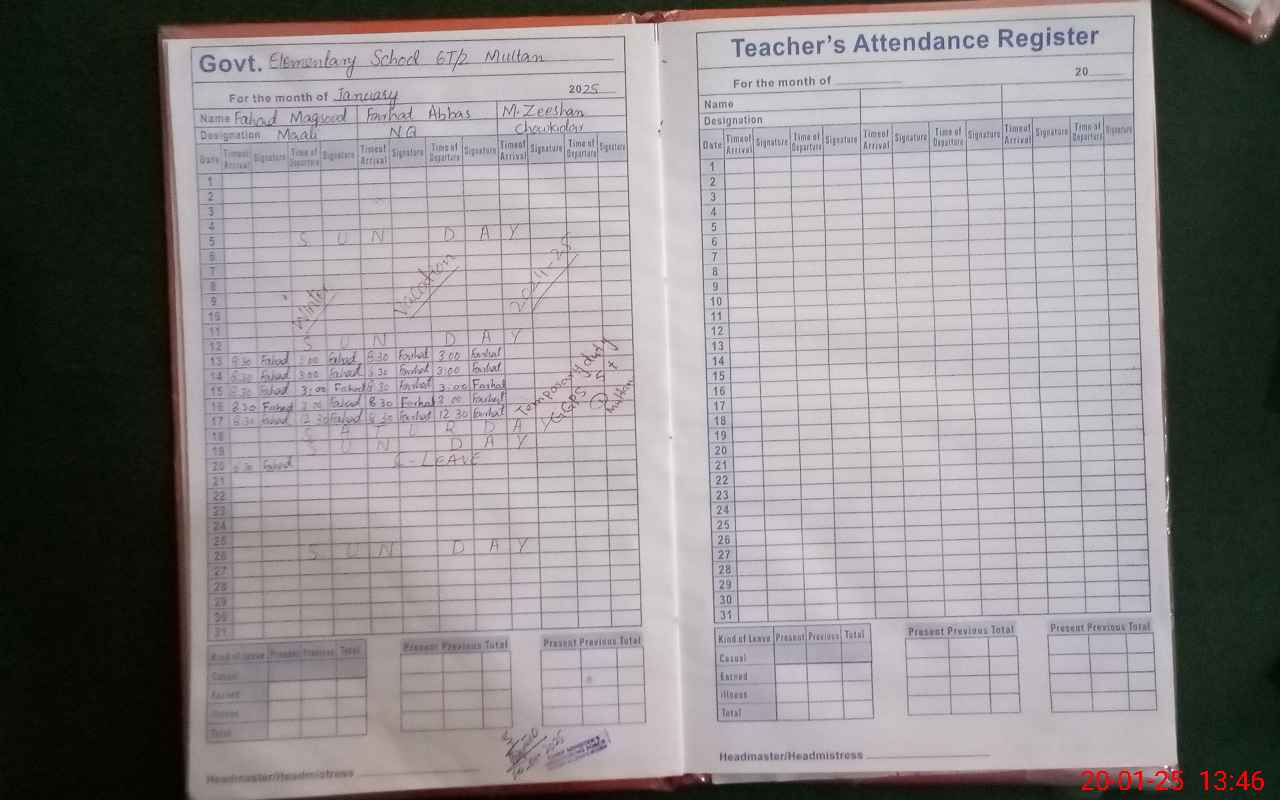 Govt. Elementary School 6T/2 Multan
For the month of January 2025
Name Fahad Maqsood Farhad Abbas M. Zeeshan
Designation Maali N.Q Chowkidar
Date Time of Arrival Signature Time of Departure Signature Time of Arrival Signature Time of Departure Signature Time of Arrival Signature Time of Departure Signature
1
2
3
4
5 S U N D A Y
6
7
8
9
10
11
Winter Vacation 2024-25
12 S U N D A Y
13 8:30 Fahad 3:00 Fahad 8:30 Farhat 3:00 Farhat
14 8:30 Fahad 3:00 Fahad 8:30 Farhat 3:00 Farhat
15 8:30 Fahad 3:00 Fahad 8:30 Farhat 3:00 Farhat
16 8:30 Fahad 3:00 Fahad 8:30 Farhat 3:00 Farhat
17 8:30 Fahad 12:30 Fahad 8:30 Farhat 12:30 Farhat
Temporary duty
GGPS 5T
Multan
18 S A T U R D A Y
19 S U N D A Y
20 8:30 Fahad C-LEAVE
21
22
23
24
25
26 S U N D A Y
27
28
29
30
31
Kind of Leave Present Previous Total Present Previous Total Present Previous Total
Casual
Earned
illness
Total
Headmaster/Headmistress
Teacher's Attendance Register
For the month of 20
Name
Designation
Date Time of Arrival Signature Time of Departure Signature Time of Arrival Signature Time of Departure Signature Time of Arrival Signature Time of Departure Signature
1
2
3
4
5
6
7
8
9
10
11
12
13
14
15
16
17
18
19
20
21
22
23
24
25
26
27
28
29
30
31
Kind of Leave Present Previous Total Present Previous Total Present Previous Total
Casual
Earned
illness
Total
Headmaster/Headmistress
20-01-25 13:46